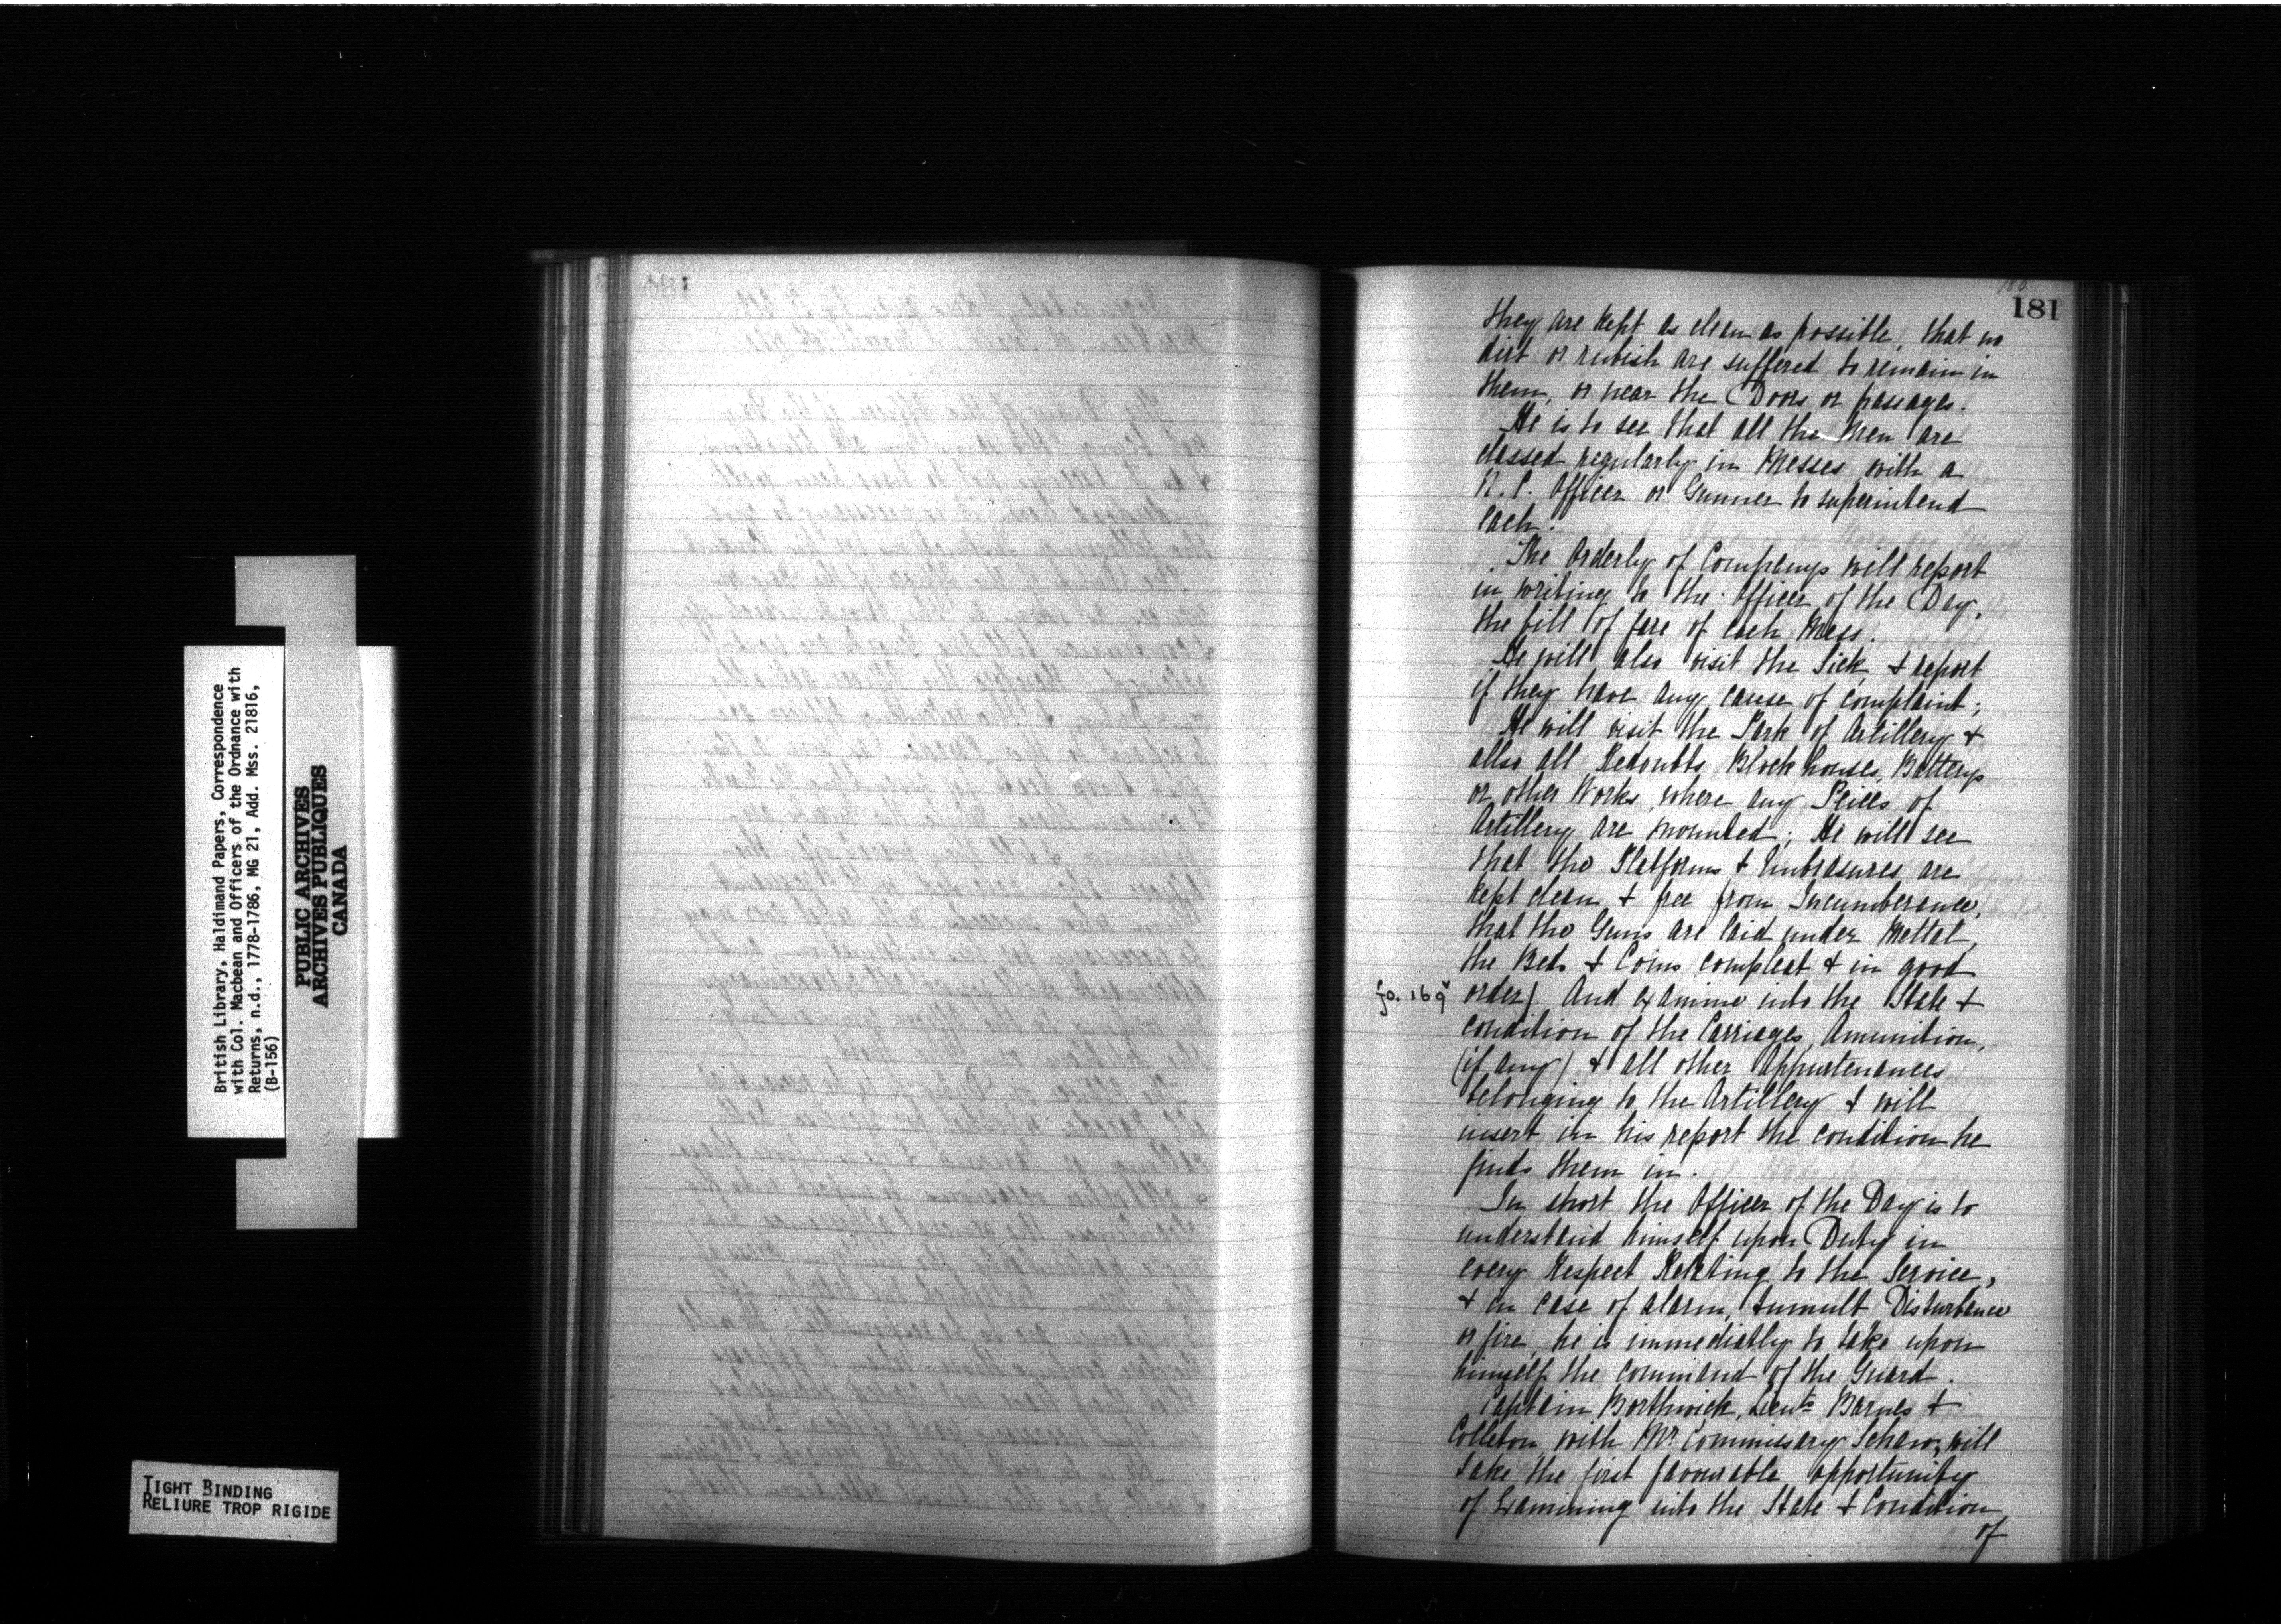 British Library, Haldimand Papers, Correspondence
with Col. Macbean and Officers of the Ordnance with
Returns, n.d., 1778-1786, MG 21, Add. Mss. 21816,
(B-156)
PUBLIC ARCHIVES
ARCHIVES PUBLIQUES
CANADA
TIGHT BINDING
RELIURE TROP RIGIDE
180
181
they are kept as clean as possible, that no
dirt or rubish are suffered to remain in
them, or near the Doors or passages.
He is to see that all the Men are
classed regularly in Messes with a
N. C. Officer or Gunner to superintend
each.
The Orderly of Companys will report
in writing to the Officer of the Day,
the bill of fare of each Mess.
He will also visit the Sick, & report
if they have any cause of complaint;
He will visit the Park of Artillery &
allso all Redoubts, Block houses, Batterys
or other Works, where any Peices of
Artillery are mounted; He will see
that the Platforms & Embrasures are
kept clean & free from Incumberance,
that the Guns are laid under Mettal,
the Beds & Coins compleat & in good
fo. 169v
order). And examine into the State &
condition of the Carriages, Amunition,
(if any) & all other Appurtenances
belonging to the Artillery & will
insert in his report the condition he
finds them in.
In short the Officer of the Day is to
understand himself upon Duty in
every Respect Relating to the Service,
& in case of alarm, tumult Disturbance
or fire, he is immediatly to take upon
himself the command of the Guard.
Captain Borthwick, Lieuts Barnes &
Colleton with Mr. Commissary Schaw, will
take the first favourable opportunity
of Examining into the State & Condition
of